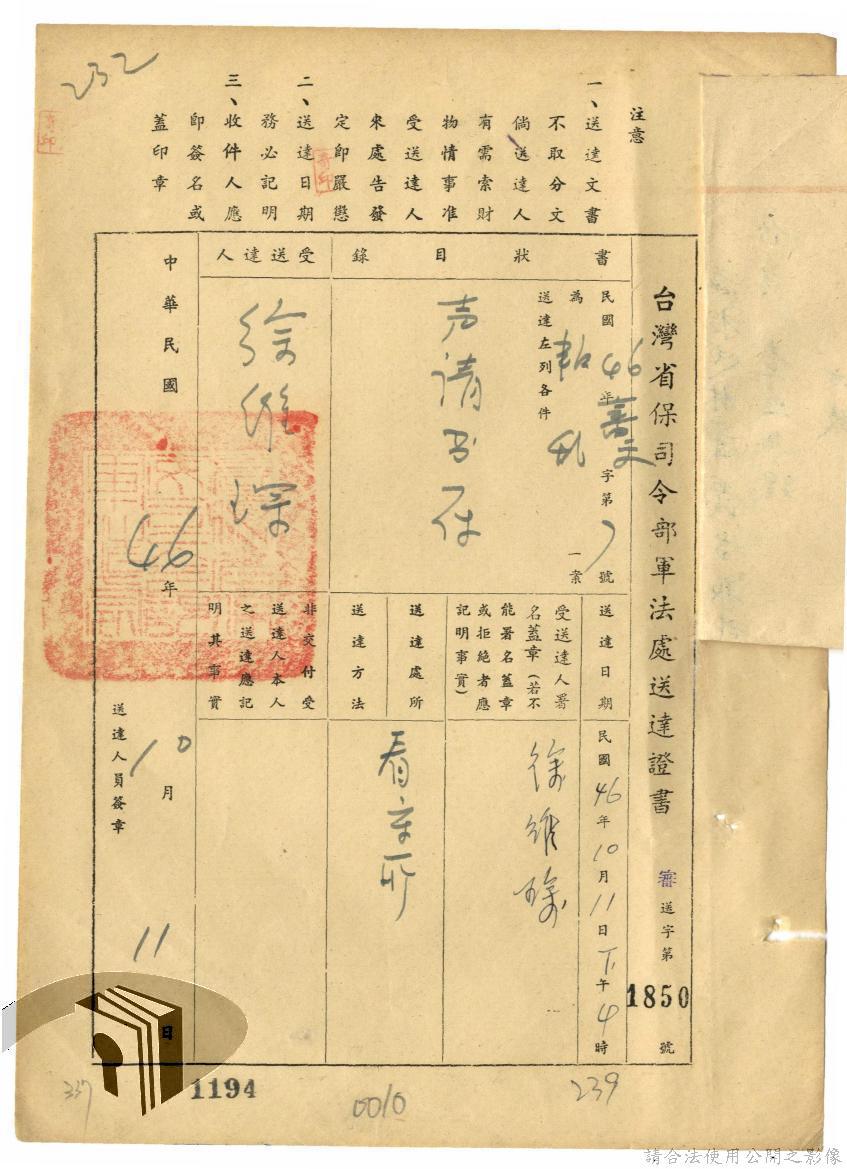 232
注意
一、送達文書
不取分文
倘送達人
有需索財
物情事准
受送達人
來處告發
定即嚴懲
二、送達日期
務必記明
三、收件人應
即簽名或
蓋印章
台灣省保司令部軍法處送達證書 審送字第1850號
民國46年審交字第 號
為 叛亂 一案
送達左列各件
書狀目錄
聲請書存
受送達人
徐維琛
送達日期
民國46年10月11日下午4時
受送達人署
名蓋章(若不
能署名蓋章
或拒絕者應
記明事實)
徐維琛
送達處所
看守所
送達方法
非交付受
送達人本人
之送達應記
明其事實
中華民國46年10月11日
送達人員簽章
1194
0010
239
237
請合法使用公開之影像